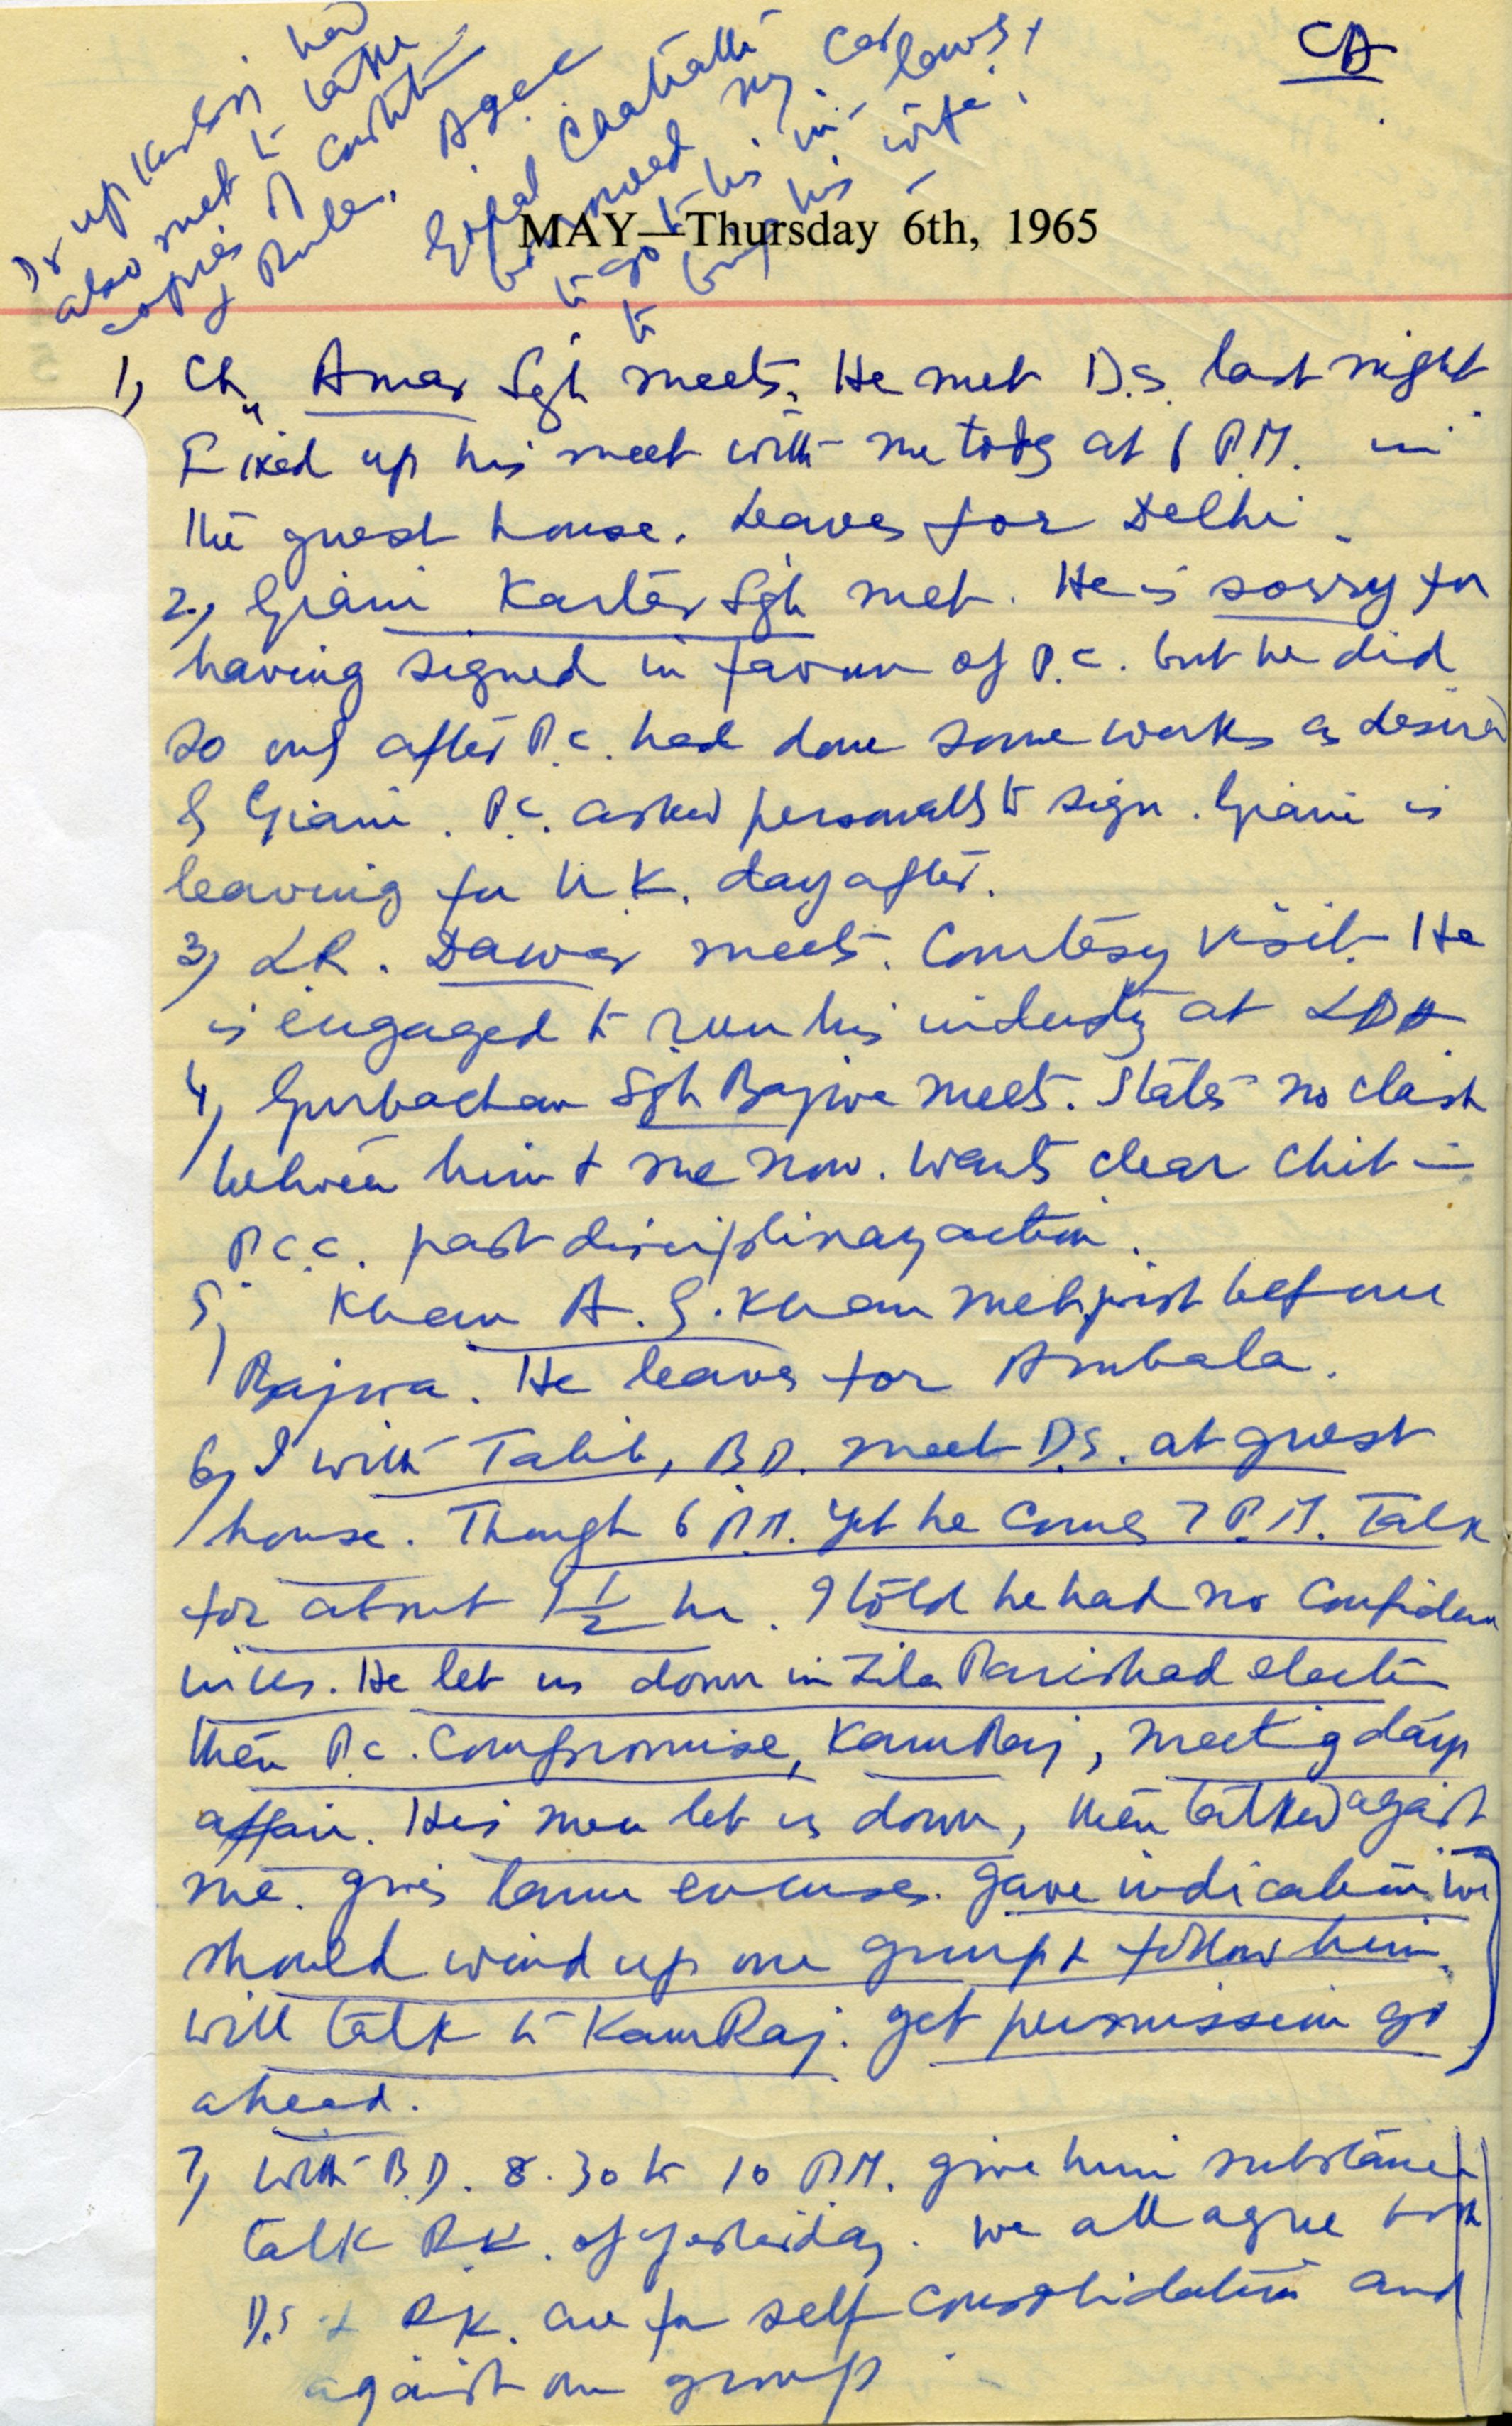 CD
also met to take
copies of
& Rules. Agee
Gopal
borrowed my car
to go to his in-laws,
to bring his wife.
MAY—Thursday 6th, 1965
1, Ch. Amar Sgh meets. He met D.S. last night
Fixed up his meet with me today at 6 P.M. in
the guest house. Leaves for Delhi.
2, Giani Kartar Sgh met. He is sorry for
having signed in favour of P.C. but he did
so only after P.C. had done some works as desired
by Giani. P.C. asked personally to sign. Giani is
leaving for U.K. day after.
3, L.R. Dawar meets. Courtesy visit. He
is engaged to run his industry at LDH
4, Gurbachan Sgh Bajwa meets. States no clash
between him & me now. Wants clear chit in
P.C.C. past disciplinary action.
5, Khan A. G. Khan met just before
Bajwa. He leaves for Ambala.
6, I with Talib, B.D. meet D.S. at guest
house. Though 6 P.M. yet he comes 7 P.M. Talk
for about 1½ hr. I told he had no confidence
in us. He let us down in Zila Parishad election
then P.C. compromise, KamRaj, meeting
affair. His men let us down, then talked against
me. gives lame excuses. gave indication we
should wind up our group & follow him.
will talk to KamRaj. get permission go
ahead.
7, with B.D. 8.30 to 10 P.M. give him substance
talk R.K. of yesterday. we all agree both
D.S & R.K. are for self consolidation and
against our group.